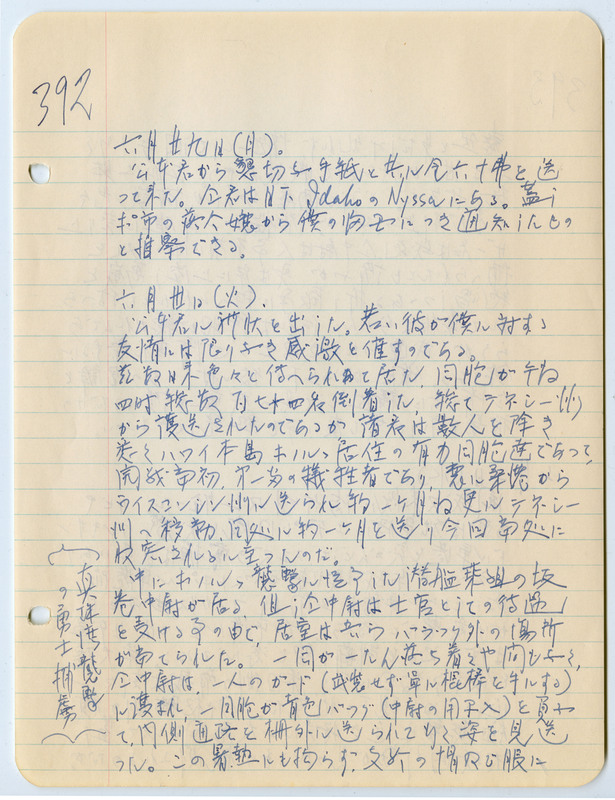 392
六月廿九日(月)。
公平君から懇切な手紙と共に金六十弗を送
って来た。仝君は目下IdahoのNyssaにある。蓋し
ポ市の 嬢から僕の につき通知したもの
と推察できる。
六月卅日(火)。
公平君に禮状を出した。若い彼が僕に対する
友情には限りなき感激を催すのである。
数日来色々と伝へられて居た、同胞が午后
四時 百七十四名到着した。総てテネシー州
から護送されたのであるが 諸君は数人を除き
悉くハワイ本島ホノルヽ居住の有力同胞連であって、
開戦当初、第一 の犠牲者であり、 桑港から
ウイスコンシン州に送られ約一ヶ月 更にテネシー
州へ移動、同処に約一ヶ月を送り今回当処に
収容されるに至つたのだ。
中にホノルヽ襲撃に 潜艦乗組の坂
巻中尉が居る。但し仝中尉は士官としての待遇
を受ける 由で、居室は バラック外の場所
が当てられた。一同が一たん落ち着くや間もなく、
仝中尉は、一人のガード(武装せず単に棍棒を手にする)
に護まれ、一同胞が 色バッグ(中尉の用 入)を負ふ
て、内側通路を柵外に送られて行く姿を見送
つた。この暑熱にも拘らず、 の 服に
(真珠湾襲撃
の勇士捕虜)